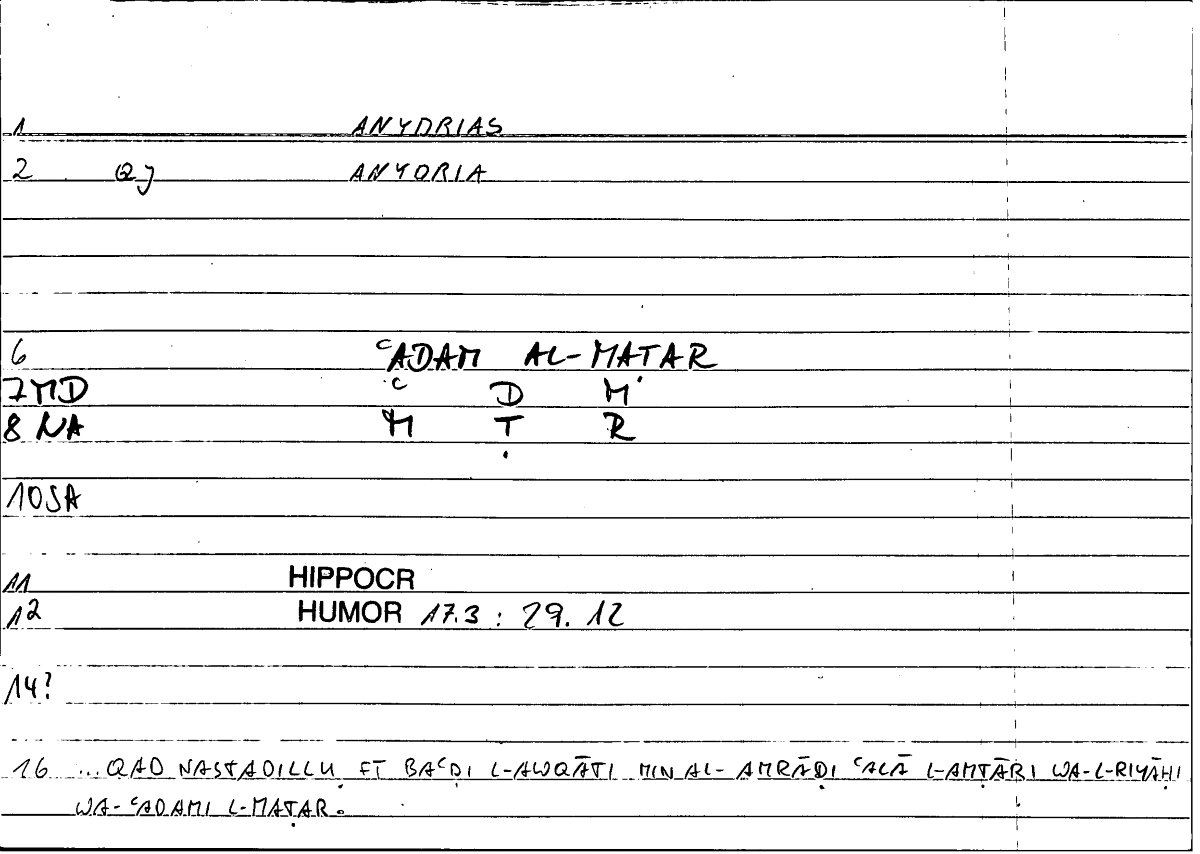 1 ANYDRIAS
2 QJ ANYDRIA
6 ʿADAM AL-MAṬAR
7 MD ʿ D M
8 NA M Ṭ R
10 SA
11 HIPPOCR
12 HUMOR 17.3 : 29.12
14?
16 ... QAD NASTADILLU FĪ BAʿḌI L-AWQĀTI MIN AL-AMRĀḌI ʿALĀ L-AMṬĀRI WA-L-RIYĀḤI
WA-ʿADAMI L-MAṬAR.